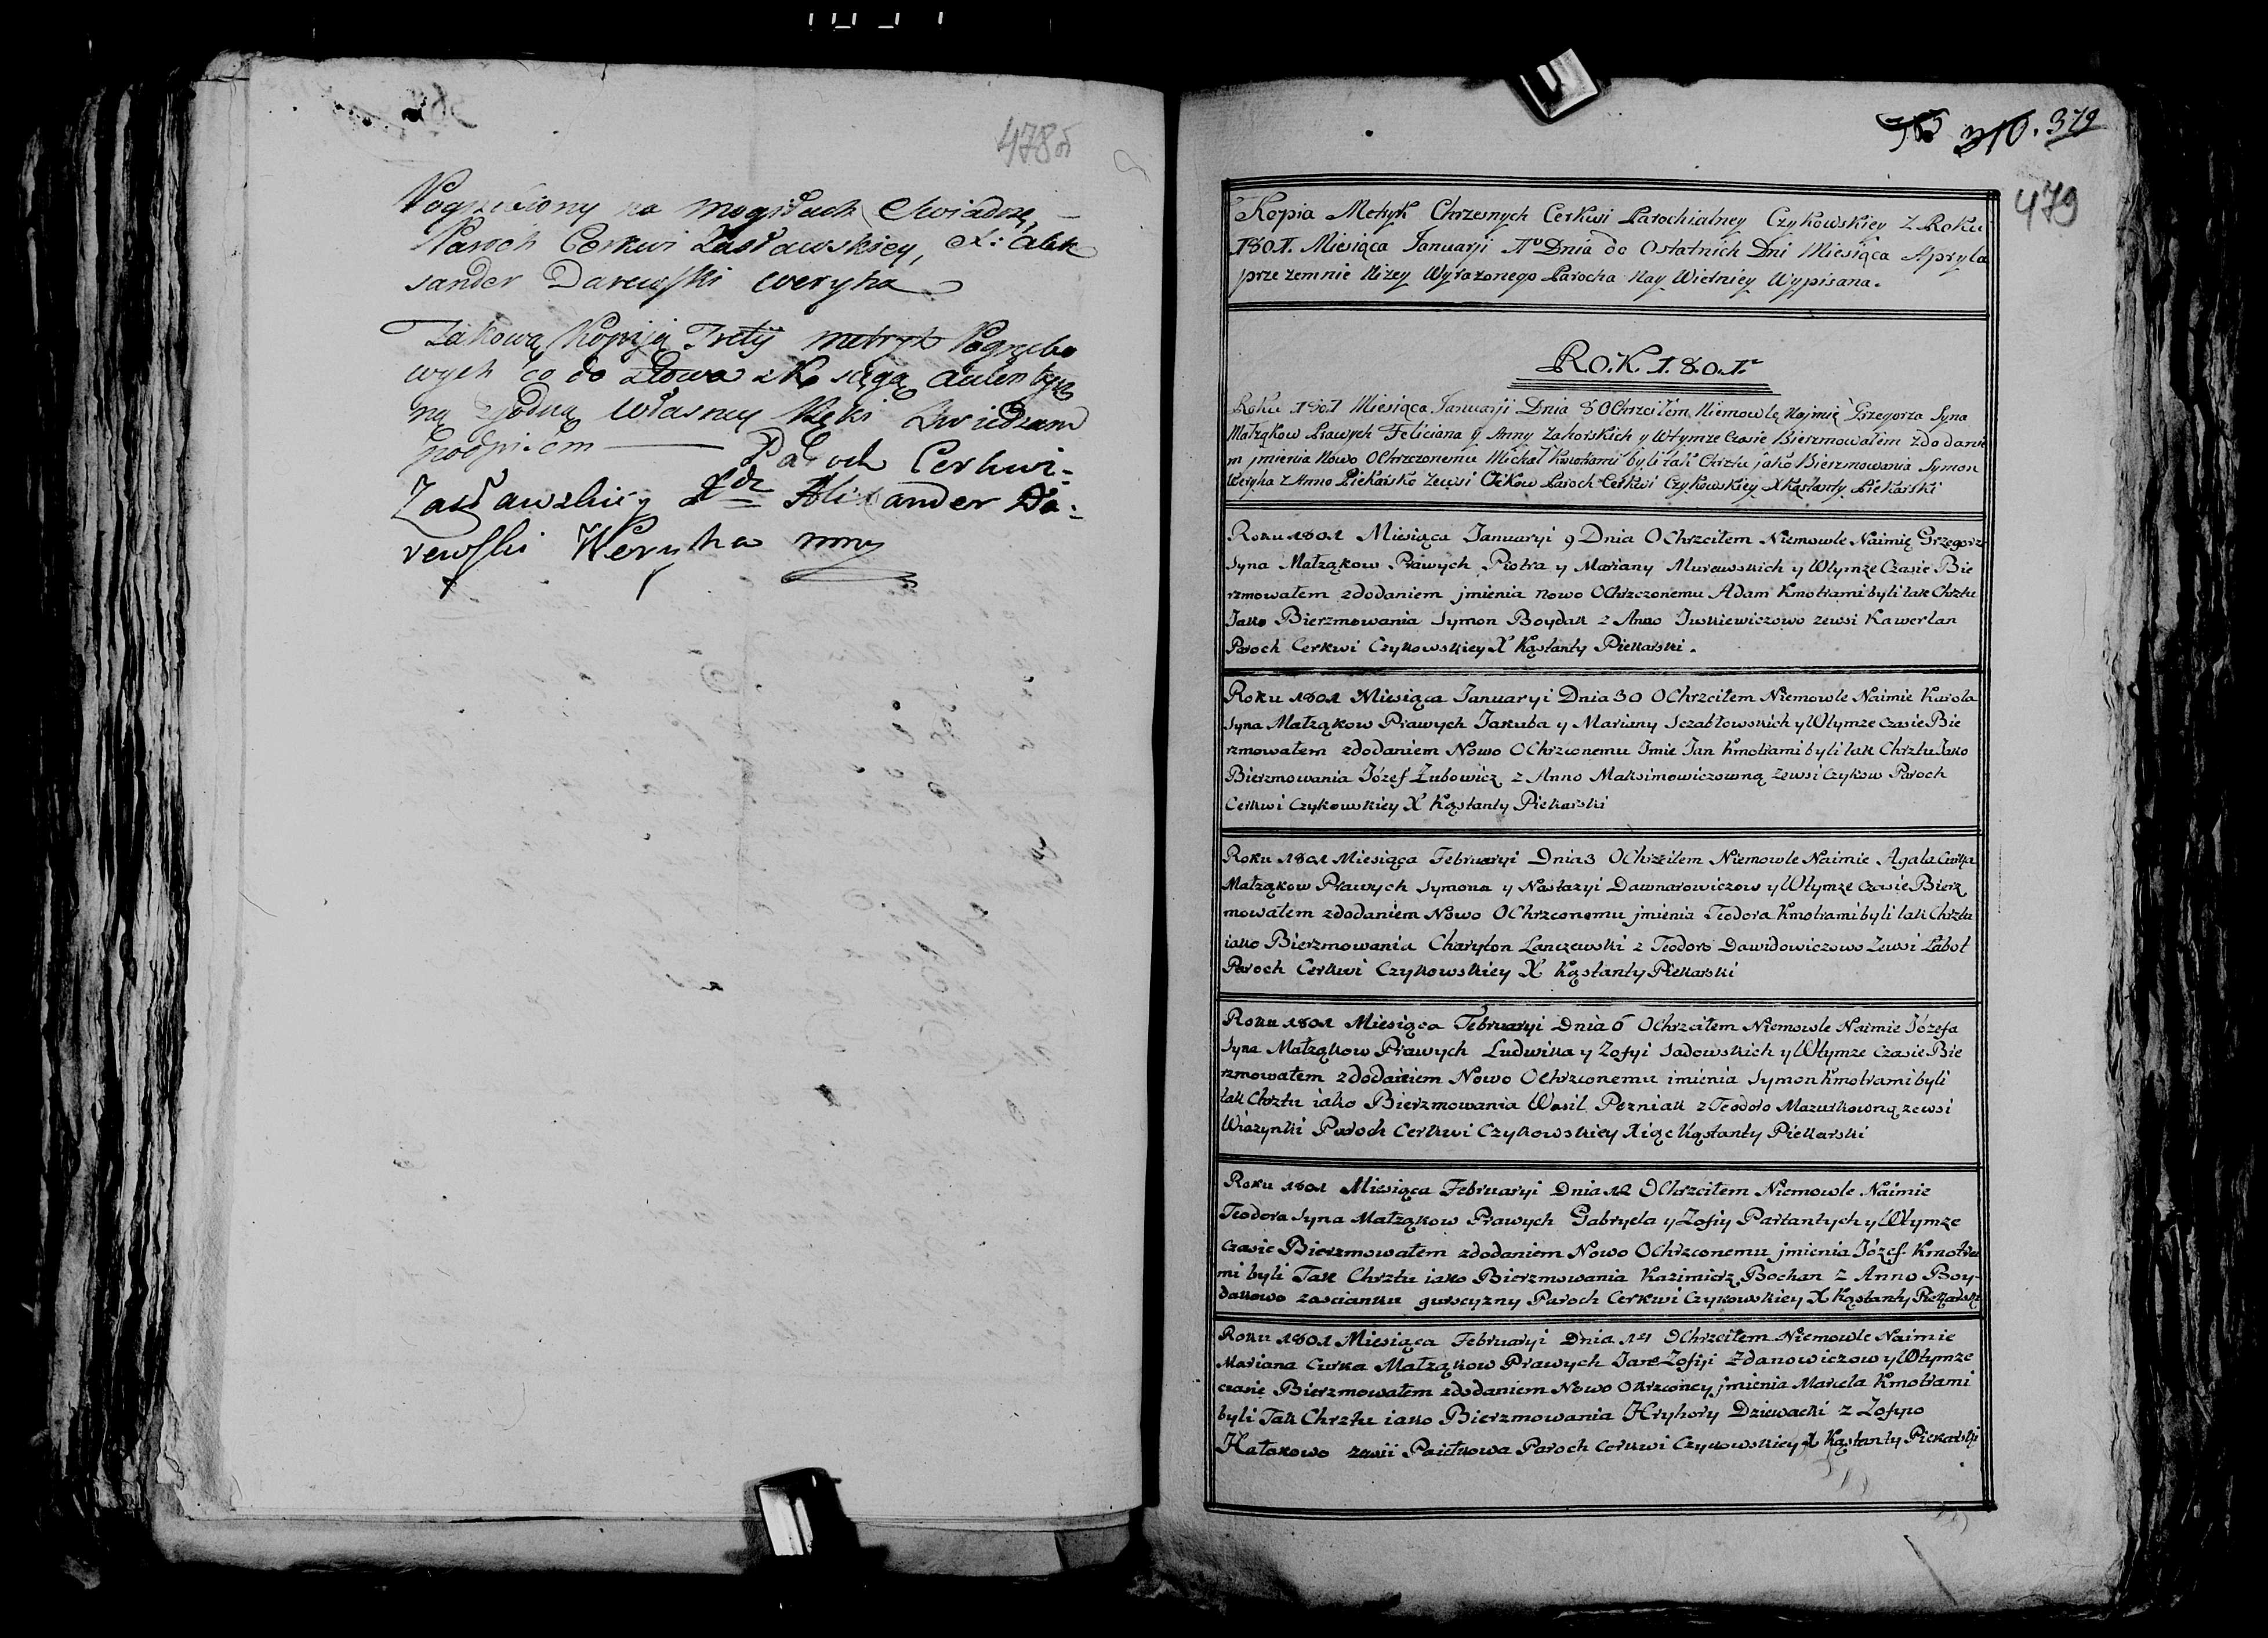 478об
Pogrzebiony na mogiłach Swiadczę,
Paroch Cerkwi Zasławskiey, X: Alek
sander Darewski Weryha
Takową Kopiją Trety metryk Pogrzebo
wych co do słowa z Xsięgą Autentycz
ną zgodną własney Ręki Zwiedzam
podpisem Paroch Cerkwi
Zasławskiey Xdz Alixander Da:
rewski Weryha mp
310. 379
479
Kopia Metryk Chrzesnych Cerkwi Parochialney Czykowskiey Z Roku
1801. Miesiąca Januarji 1o Dnia do Ostatnich Dni Miesiąca Apryla
prze zemnie Niżey Wyrażonego Parocha Nay Wierniey Wypisana.
ROK 1.8.0.1.
Roku 1801 Miesiąca Januarji Dnia 8 Ochrzciłem Niemowlę Najmię Grzegorza Syna
Małząkow Prawych Feliciana y Anny Zahorskich y Wtymze Czasie Bierzmowałem zdo danie
m jmienia Nowo Ochrzczonemu Michał Kmotrami byli tak Chrztu jako Bierzmowania Symon
Weryha z Anno Piekarsko Zewsi Cżikow Paroch Cerkwi Czykowskiey X Kąstanty Piekarski
Roku 1801 Miesiąca Januaryi 9 Dnia OChrzciłem Niemowle Naimię Grzegorz
Syna Małząkow Prawych Piotra y Mariany Murawskich y Wtymże Czasie Bie
rzmowałem zdodaniem jmienia nowo OChrzczonemu Adam Kmotrami byli tak Chrztu
Jako Bierzmowania Symon Boydak z Anno Juskiewiczowo zewsi Kawerlan
Paroch Cerkwi Czykowskiey X Kąstanty Piekarski.
Roku 1801 Miesiąca Januaryi Dnia 30 OChrzciłem Niemowle Naimie Karola
Syna Małząkow Prawych Jakuba y Mariany Sczabłowskich y Wtymze Czasie Bie
rzmowałem zdodaniem Nowo OChrzconemu Imie Jan Kmotrami byli tak Chrztu Jako
Bierzmowania Józef Żubowicz z Anno Maksimowiczowną zewsi Czykow Paroch
Cerkwi Czykowskiey X Kąstanty Piekarski
Roku 1801 Miesiąca Februaryi Dnia 3 OChrzciłem Niemowle Naimie Agata Curka
Małząkow Prawych Symona y Nastazyi Dawnarowiczow y Wtymze Czasie Bierz
mowałem zdodaniem Nowo OChrzconemu jmienia Teodora Kmotrami byli tak Chrztu
iako Bierzmowania Charyton Lanczewski z Teodoro Dawidowiczowo Zewsi Łabot
Paroch Cerkwi Czykowskiey X Kąstanty Piekarski
Roku 1801 Miesiąca Februaryi Dnia 6 OChrzciłem Niemowle Naimie Józefa
Syna Małząkow Prawych Ludwika y Zofyi Sadowskich y Wtymze Czasie Bie
rzmowałem zdodaniem Nowo OChrzconemu imienia Symon Kmotrami byli
tak Chrztu iako Bierzmowania Wasil Pozniak z Teodoro Mazurkowną zewsi
Wiazynki Paroch Cerkwi Czykowskiey Xiąc Kąstanty Piekarski
Roku 1801 Miesiąca Februaryi Dnia 12 OChrzciłem Niemowle Naimie
Teodora Syna Małząkow Prawych Gabryela y Zofiy Partantych y Wtymze
Czasie Bierzmowałem zdodaniem Nowo OChrzconemu jmienia Józef Kmotra
mi byli Tak Chrztu iako Bierzmowania Kazimierz Bochan z Anno Boy-
dakowo zascianku gurscyzny Paroch Cerkwi Czykowskiey X Kąstanty Piekarski
Roku 1801 Miesiąca Februaryi Dnia 14 OChrzciłem Niemowle Naimie
Mariana Curka Małząkow Prawych Jana Zofiji Zdanowiczow y Wtymze
czasie Bierzmowałem zdodaniem Nowo Okrzconey jmienia Marcela Kmotrami
byli Tak Chrztu iako Bierzmowania Hryhory Dziewacki z Zofyio
Hatakowo zewii Paietkowa Paroch Cerkwi Czykowskiey X Kąstanty Piekarski